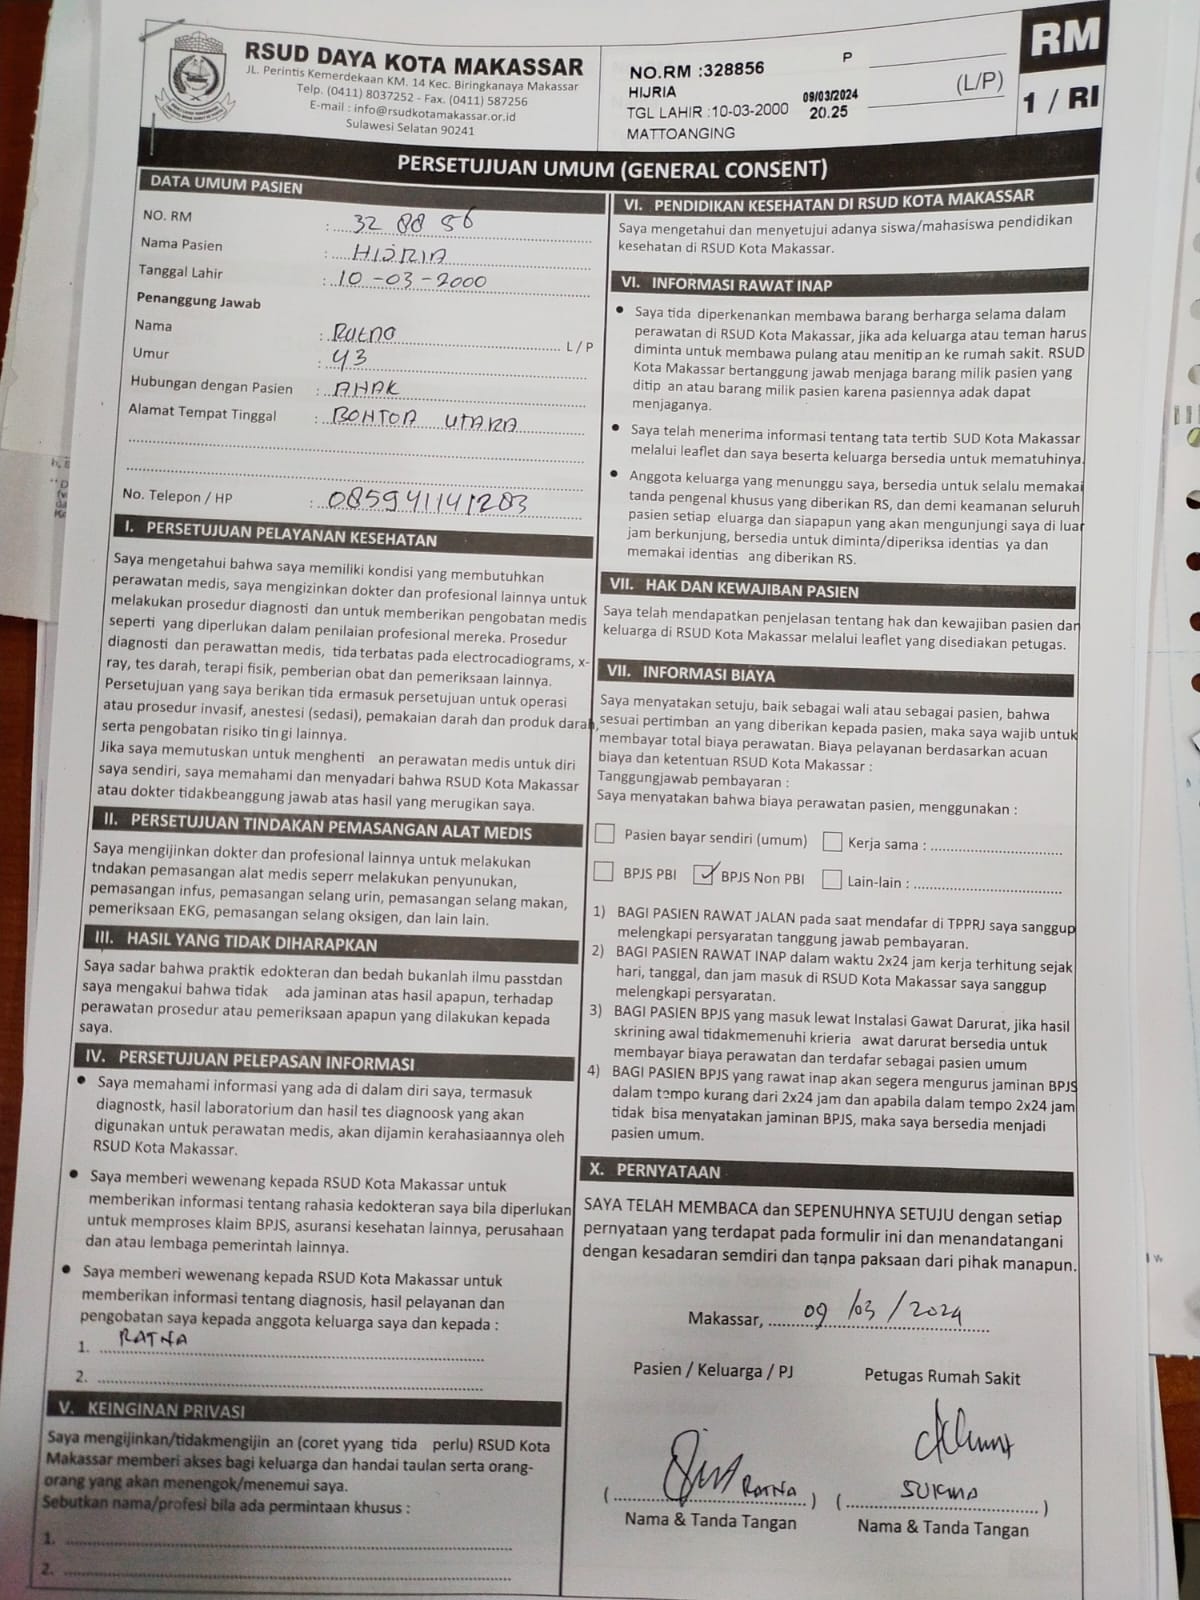 RSUD DAYA KOTA MAKASSAR
JL. Perintis Kemerdekaan KM. 14 Kec. Biringkanaya Makassar
Telp. (0411) 8037252 - Fax. (0411) 587256
E-mail : info@rsudkotamakassar.or.id
Sulawesi Selatan 90241
NO.RM :328856 P
HIJRIA 09/03/2024
TGL LAHIR :10-03-2000 20.25
MATTOANGING
(L/P)
RM
1 / RI
PERSETUJUAN UMUM (GENERAL CONSENT)
DATA UMUM PASIEN
NO. RM : 32 88 56
Nama Pasien : HIJRIA
Tanggal Lahir : 10 -03 -2000
Penanggung Jawab
Nama : Ratna L / P
Umur : 43
Hubungan dengan Pasien : ANAK
Alamat Tempat Tinggal : BONTOA UTARA
No. Telepon / HP : 085941141203
I. PERSETUJUAN PELAYANAN KESEHATAN
Saya mengetahui bahwa saya memiliki kondisi yang membutuhkan
perawatan medis, saya mengizinkan dokter dan profesional lainnya untuk
melakukan prosedur diagnosti dan untuk memberikan pengobatan medis
seperti yang diperlukan dalam penilaian profesional mereka. Prosedur
diagnosti dan perawattan medis, tida terbatas pada electrocadiograms, x-
ray, tes darah, terapi fisik, pemberian obat dan pemeriksaan lainnya.
Persetujuan yang saya berikan tida ermasuk persetujuan untuk operasi
atau prosedur invasif, anestesi (sedasi), pemakaian darah dan produk darah,
serta pengobatan risiko tin gi lainnya.
Jika saya memutuskan untuk menghenti an perawatan medis untuk diri
saya sendiri, saya memahami dan menyadari bahwa RSUD Kota Makassar
atau dokter tidakbeanggung jawab atas hasil yang merugikan saya.
II. PERSETUJUAN TINDAKAN PEMASANGAN ALAT MEDIS
Saya mengijinkan dokter dan profesional lainnya untuk melakukan
tndakan pemasangan alat medis seperr melakukan penyunukan,
pemasangan infus, pemasangan selang urin, pemasangan selang makan,
pemeriksaan EKG, pemasangan selang oksigen, dan lain lain.
III. HASIL YANG TIDAK DIHARAPKAN
Saya sadar bahwa praktik edokteran dan bedah bukanlah ilmu passtdan
saya mengakui bahwa tidak ada jaminan atas hasil apapun, terhadap
perawatan prosedur atau pemeriksaan apapun yang dilakukan kepada
saya.
IV. PERSETUJUAN PELEPASAN INFORMASI
• Saya memahami informasi yang ada di dalam diri saya, termasuk
diagnostk, hasil laboratorium dan hasil tes diagnoosk yang akan
digunakan untuk perawatan medis, akan dijamin kerahasiaannya oleh
RSUD Kota Makassar.
• Saya memberi wewenang kepada RSUD Kota Makassar untuk
memberikan informasi tentang rahasia kedokteran saya bila diperlukan
untuk memproses klaim BPJS, asuransi kesehatan lainnya, perusahaan
dan atau lembaga pemerintah lainnya.
• Saya memberi wewenang kepada RSUD Kota Makassar untuk
memberikan informasi tentang diagnosis, hasil pelayanan dan
pengobatan saya kepada anggota keluarga saya dan kepada :
1. RATNA
2.
V. KEINGINAN PRIVASI
Saya mengijinkan/tidakmengijin an (coret yyang tida perlu) RSUD Kota
Makassar memberi akses bagi keluarga dan handai taulan serta orang-
orang yang akan menengok/menemui saya.
Sebutkan nama/profesi bila ada permintaan khusus :
1.
2.
VI. PENDIDIKAN KESEHATAN DI RSUD KOTA MAKASSAR
Saya mengetahui dan menyetujui adanya siswa/mahasiswa pendidikan
kesehatan di RSUD Kota Makassar.
VI. INFORMASI RAWAT INAP
• Saya tida diperkenankan membawa barang berharga selama dalam
perawatan di RSUD Kota Makassar, jika ada keluarga atau teman harus
diminta untuk membawa pulang atau menitip an ke rumah sakit. RSUD
Kota Makassar bertanggung jawab menjaga barang milik pasien yang
ditip an atau barang milik pasien karena pasiennya adak dapat
menjaganya.
• Saya telah menerima informasi tentang tata tertib SUD Kota Makassar
melalui leaflet dan saya beserta keluarga bersedia untuk mematuhinya.
• Anggota keluarga yang menunggu saya, bersedia untuk selalu memakai
tanda pengenal khusus yang diberikan RS, dan demi keamanan seluruh
pasien setiap eluarga dan siapapun yang akan mengunjungi saya di luar
jam berkunjung, bersedia untuk diminta/diperiksa identias ya dan
memakai identias ang diberikan RS.
VII. HAK DAN KEWAJIBAN PASIEN
Saya telah mendapatkan penjelasan tentang hak dan kewajiban pasien dan
keluarga di RSUD Kota Makassar melalui leaflet yang disediakan petugas.
VII. INFORMASI BIAYA
Saya menyatakan setuju, baik sebagai wali atau sebagai pasien, bahwa
sesuai pertimban an yang diberikan kepada pasien, maka saya wajib untuk
membayar total biaya perawatan. Biaya pelayanan berdasarkan acuan
biaya dan ketentuan RSUD Kota Makassar :
Tanggungjawab pembayaran :
Saya menyatakan bahwa biaya perawatan pasien, menggunakan :
Pasien bayar sendiri (umum) Kerja sama :
BPJS PBI ✓ BPJS Non PBI Lain-lain :
1) BAGI PASIEN RAWAT JALAN pada saat mendafar di TPPRJ saya sanggup
melengkapi persyaratan tanggung jawab pembayaran.
2) BAGI PASIEN RAWAT INAP dalam waktu 2x24 jam kerja terhitung sejak
hari, tanggal, dan jam masuk di RSUD Kota Makassar saya sanggup
melengkapi persyaratan.
3) BAGI PASIEN BPJS yang masuk lewat Instalasi Gawat Darurat, jika hasil
skrining awal tidakmemenuhi krieria awat darurat bersedia untuk
membayar biaya perawatan dan terdafar sebagai pasien umum
4) BAGI PASIEN BPJS yang rawat inap akan segera mengurus jaminan BPJS
dalam tempo kurang dari 2x24 jam dan apabila dalam tempo 2x24 jam
tidak bisa menyatakan jaminan BPJS, maka saya bersedia menjadi
pasien umum.
X. PERNYATAAN
SAYA TELAH MEMBACA dan SEPENUHNYA SETUJU dengan setiap
pernyataan yang terdapat pada formulir ini dan menandatangani
dengan kesadaran semdiri dan tanpa paksaan dari pihak manapun.
Makassar, 09 /03 /2024
Pasien / Keluarga / PJ Petugas Rumah Sakit
( RATNA ) ( SUKMA )
Nama & Tanda Tangan Nama & Tanda Tangan